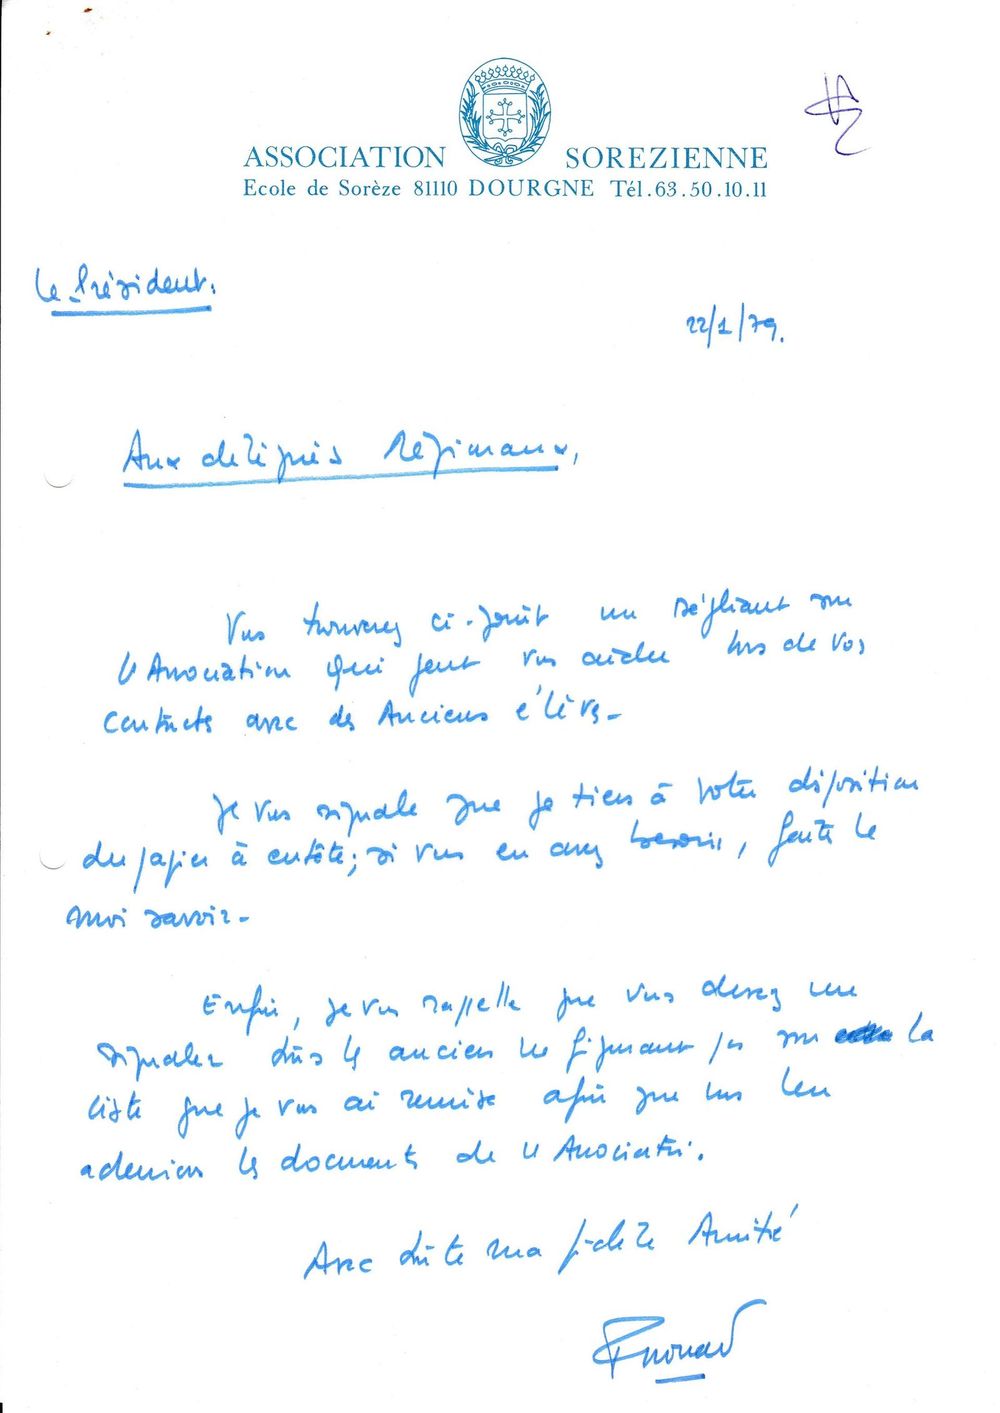 ASSOCIATION SOREZIENNE
Ecole de Sorèze 81110 DOURGNE Tél. 63.50.10.11
Le Président.
22/1/79.
Aux délégués Régionaux,
Vous trouverez ci-joint un dépliant sur
l'Association qui peut vous aider lors de vos
contacts avec des Anciens élèves -
Je vous signale que je tiens à votre disposition
du papier à entête; si vous en avez besoin, faite le
moi savoir -
Enfin, je vous rappelle que vous devez me
signaler tous les anciens ne figurant pas sur la
liste que je vous ai remise afin que nous leur
adressions les documents de l'Association.
Avec toute ma fidèle Amitié